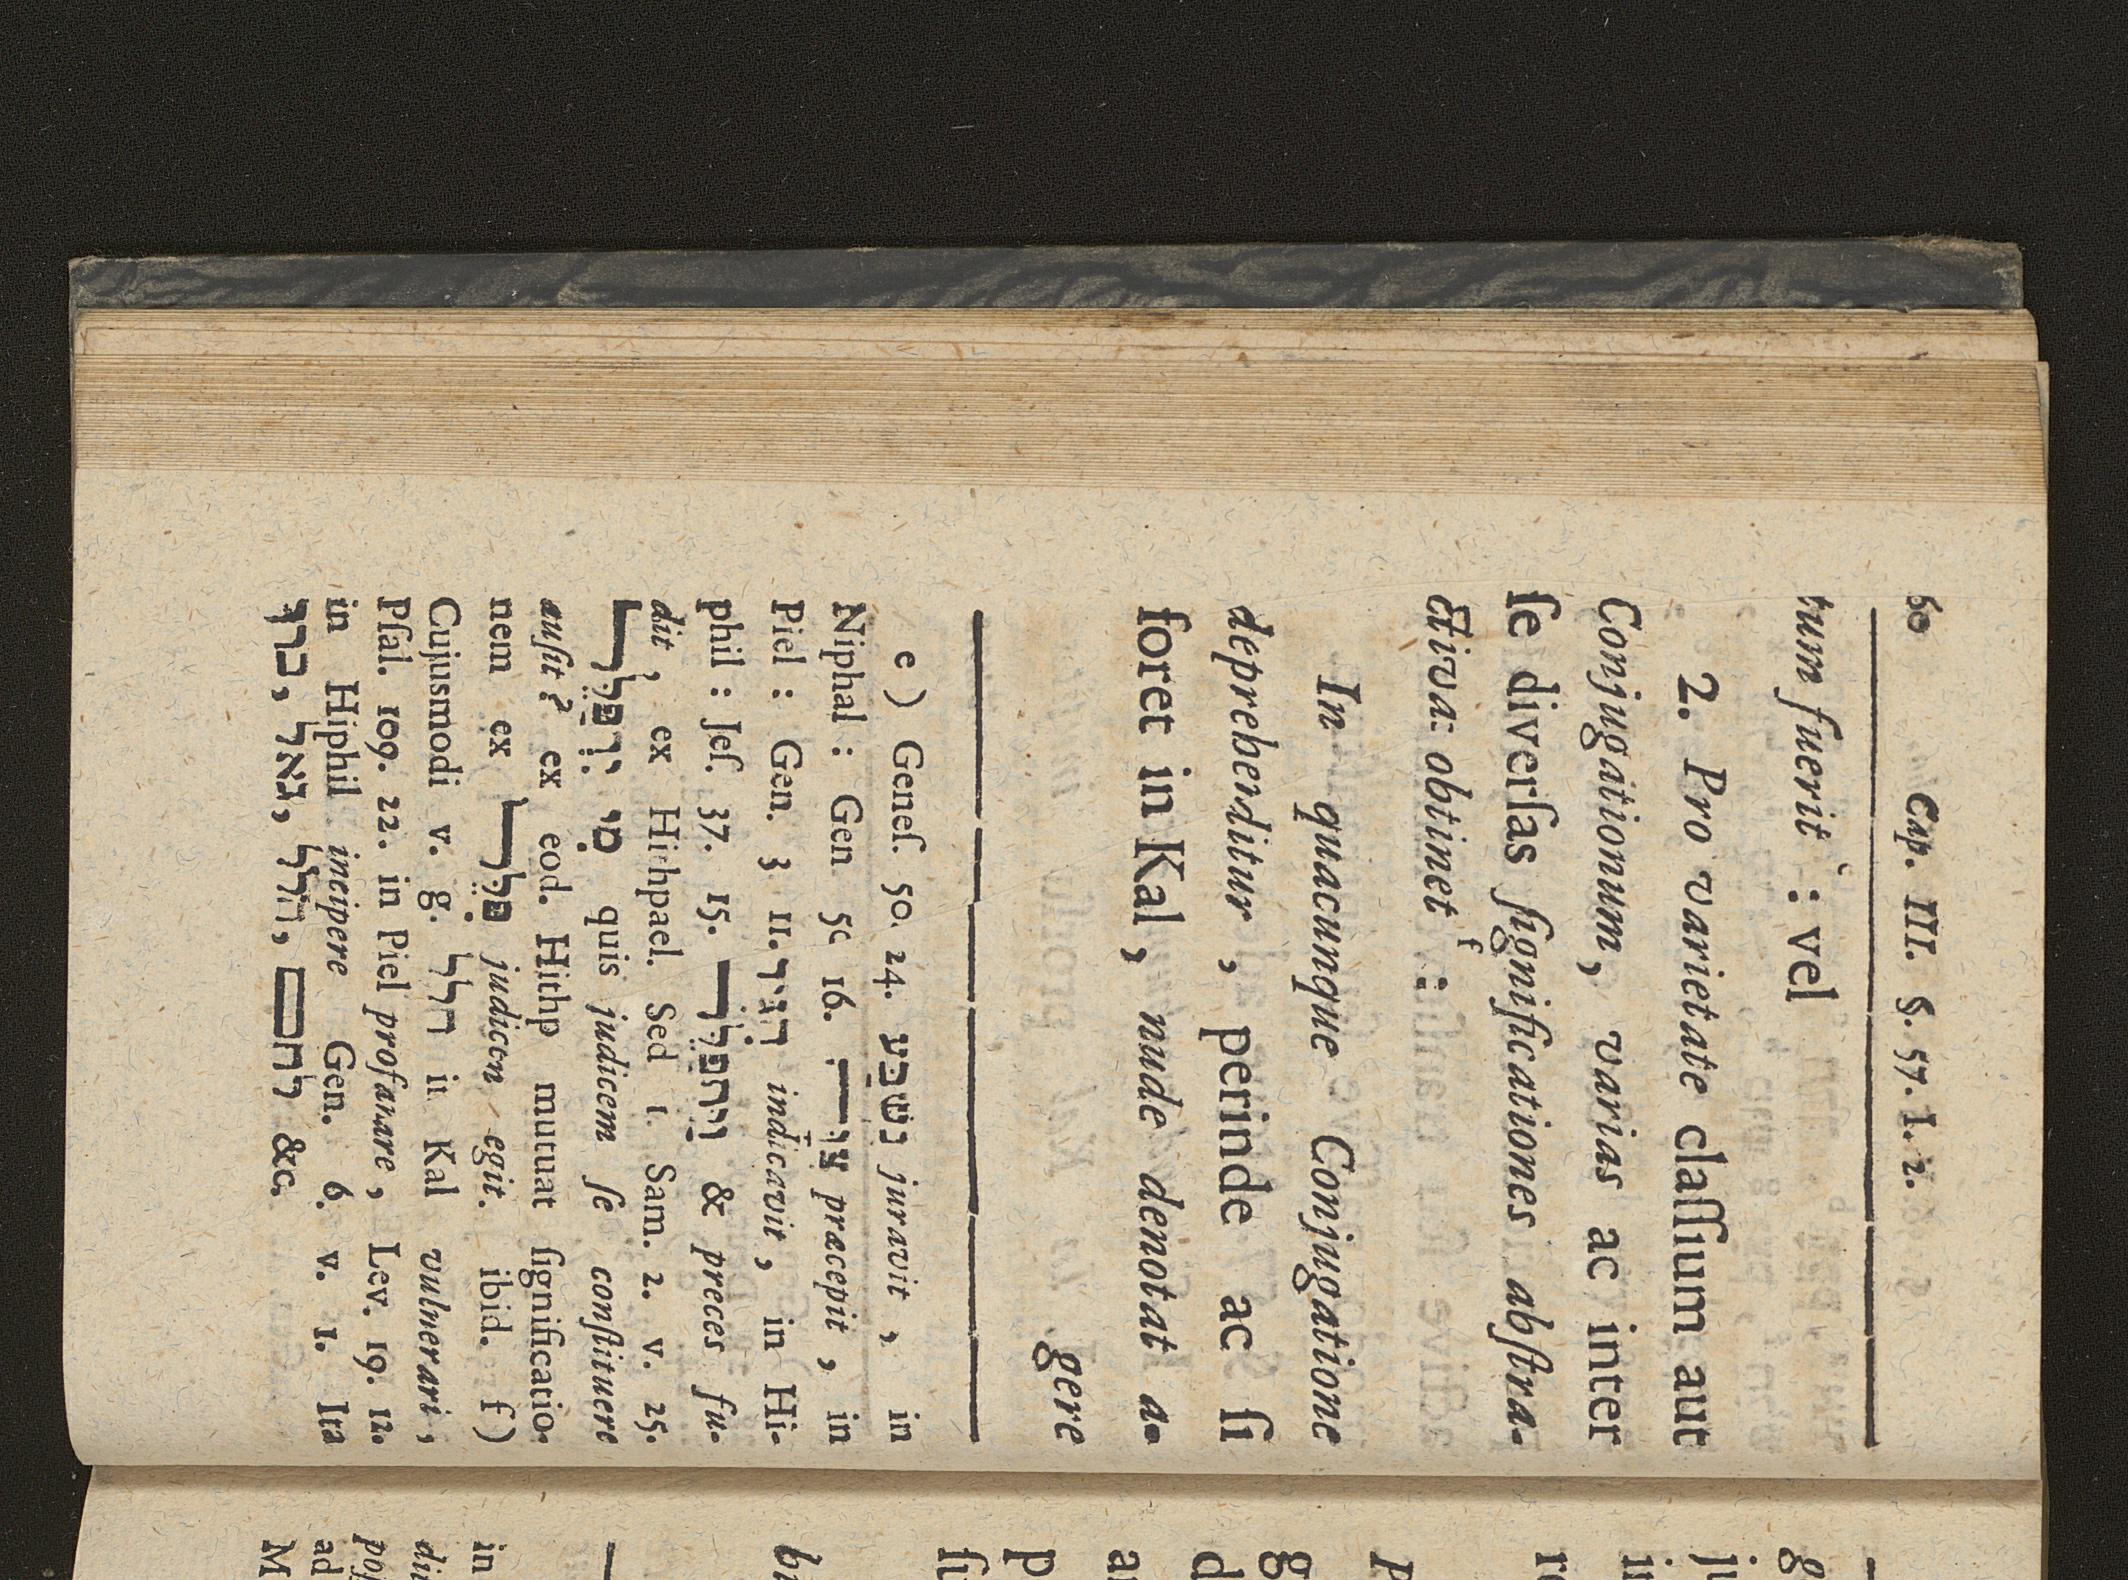 60 Cap. III. §. 57. I. 2.
tum fuerit : vel
2. Pro varietate claſſium aut
Conjugationum, varias ac inter
ſe diverſas ſignificationes abſtra-
ctiva: obtinet f :
In quacunque Conjugatione
deprehenditur, perinde ac ſi
foret in Kal, nude denotat a-
gere
e) Geneſ. 50. 24. נִשְׁבַּע juravit, in
Niphal: Gen 50 16. צִוָּה præcepit, in
Piel: Gen. 3 11. הִגִּיד indicavit, in Hi-
phil: Jeſ. 37. 15. וַיִּתְפַּלֵּל & preces fu-
dit, ex Hithpael. Sed 1 Sam. 2. v. 25.
מִי יִתְפַּלֶּל quis judicem ſe conſtituere
auſit? ex eod. Hithp mutuat ſignificatio-
nem ex פִּלֵּל judicem egit. ibid. f)
Cujusmodi v. g. חלל in Kal vulnerari,
Pſal. 109. 22. in Piel profanare, Lev. 19. 12.
in Hiphil incipere Gen. 6. v. 1. Ita
ברך, גאל, הלל, לחם &c.
g
p
a
d
g
p
in
ad
M